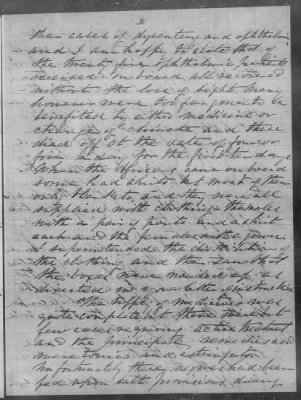 2
their cases of dysentery and ophthalmia
and I am happy to state that of
the twenty five ophthalmic patients
received on board all recovered
without the loss of sight. Many
however were too far gone to be
benefitted by either medicine or
change of climate and these
died off at the rate of four or
five a day for the first ten days
When the Africans came on board
some had shirts but most of them
only blankets, and they
supplied with clothing the males
with a pair of pants and a shirt
each and the females with a gown
I superintended the distribution of
the clothing and the contents of
the boxes were as
directed in your letter of instructions
The supply of medicines was
quite complete but there were but
few cases requiring active treatment
and the principal remedies used
were tonics and astringents
Unfortunately these negroes had been
fed upon salt provisions during